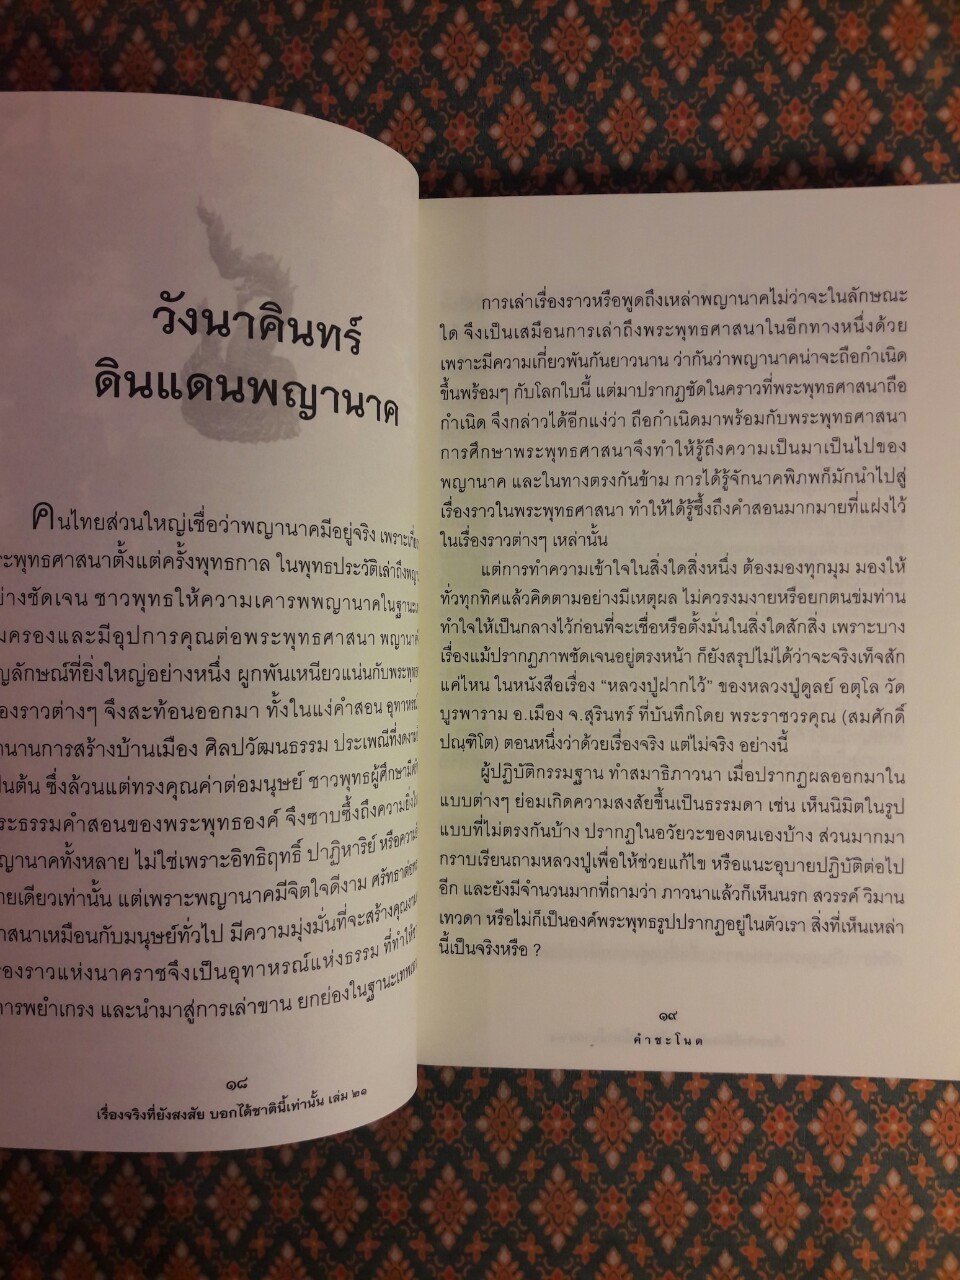 วังนาคินทร์
ดินแดนพญานาค
คนไทยส่วนใหญ่เชื่อว่าพญานาคมีอยู่จริง
ระพุทธศาสนาตั้งแต่ครั้งพุทธกาล ในพุทธประวัติเล่าถึงพญา
ย่างชัดเจน ชาวพุทธให้ความเคารพพญานาคในฐานะ
มครองและมีอุปการคุณต่อพระพุทธศาสนา พญานาค
ญลักษณ์ที่ยิ่งใหญ่อย่างหนึ่ง ผูกพันเหนียวแน่นกับพระพุทธ
องราวต่างๆ จึงสะท้อนออกมา ทั้งในแง่คำสอน อุทาหรณ์
ำนานการสร้างบ้านเมือง ศิลปวัฒนธรรม ประเพณีที่งดงาม
ป็นต้น ซึ่งล้วนแต่ทรงคุณค่าต่อมนุษย์ ชาวพุทธผู้ศึกษา
ระธรรมคำสอนของพระพุทธองค์ จึงซาบซึ้งถึงความยิ่ง
ญานาคทั้งหลาย ไม่ใช่เพราะอิทธิฤทธิ์ ปาฏิหาริย์
ายเดียวเท่านั้น แต่เพราะพญานาคมีจิตใจดีงาม
าสนาเหมือนกับมนุษย์ทั่วไป มีความมุ่งมั่นที่จะสร้างคุณงาม
องราวแห่งนาคราชจึงเป็นอุทาหรณ์แห่งธรรม
ารพยำเกรง และนำมาสู่การเล่าขาน ยกย่องในฐานะ
๑๘
เรื่องจริงที่ยังสงสัย บอกได้ชาตินี้เท่านั้น เล่ม ๒๑
การเล่าเรื่องราวหรือพูดถึงเหล่าพญานาคไม่ว่าจะในลักษณะ
ใด จึงเป็นเสมือนการเล่าถึงพระพุทธศาสนาในอีกทางหนึ่งด้วย
เพราะมีความเกี่ยวพันกันยาวนาน ว่ากันว่าพญานาคน่าจะถือกำเนิด
ขึ้นพร้อมๆ กับโลกใบนี้ แต่มาปรากฏชัดในคราวที่พระพุทธศาสนาถือ
กำเนิด จึงกล่าวได้อีกแง่ว่า ถือกำเนิดมาพร้อมกับพระพุทธศาสนา
การศึกษาพระพุทธศาสนาจึงทำให้รู้ถึงความเป็นมาเป็นไปของ
พญานาค และในทางตรงกันข้าม การได้รู้จักนาคพิภพก็มักนำไปสู่
เรื่องราวในพระพุทธศาสนา ทำให้ได้รู้ซึ้งถึงคำสอนมากมายที่แฝงไว้
ในเรื่องราวต่างๆ เหล่านั้น
แต่การทำความเข้าใจในสิ่งใดสิ่งหนึ่ง ต้องมองทุกมุม มองให้
ทั่วทุกทิศแล้วคิดตามอย่างมีเหตุผล ไม่ควรงมงายหรือยกตนข่มท่าน
ทำใจให้เป็นกลางไว้ก่อนที่จะเชื่อหรือตั้งมั่นในสิ่งใดสักสิ่ง เพราะบาง
เรื่องแม้ปรากฏภาพชัดเจนอยู่ตรงหน้า ก็ยังสรุปไม่ได้ว่าจะจริงเท็จสัก
แค่ไหน ในหนังสือเรื่อง “หลวงปู่ฝากไว้” ของหลวงปู่ดูลย์ อตุโล วัด
บูรพาราม อ.เมือง จ.สุรินทร์ ที่บันทึกโดย พระราชวรคุณ (สมศักดิ์
ปณฺฑิโต) ตอนหนึ่งว่าด้วยเรื่องจริง แต่ไม่จริง อย่างนี้
ผู้ปฏิบัติกรรมฐาน ทำสมาธิภาวนา เมื่อปรากฏผลออกมาใน
แบบต่างๆ ย่อมเกิดความสงสัยขึ้นเป็นธรรมดา เช่น เห็นนิมิตในรูป
แบบที่ไม่ตรงกันบ้าง ปรากฏในอวัยวะของตนเองบ้าง ส่วนมากมา
กราบเรียนถามหลวงปู่เพื่อให้ช่วยแก้ไข หรือแนะอุบายปฏิบัติต่อไป
อีก และยังมีจำนวนมากที่ถามว่า ภาวนาแล้วก็เห็นนรก สวรรค์ วิมาน
เทวดา หรือไม่ก็เป็นองค์พระพุทธรูปปรากฏอยู่ในตัวเรา สิ่งที่เห็นเหล่า
นี้เป็นจริงหรือ ?
๑๙
คำชะโนด